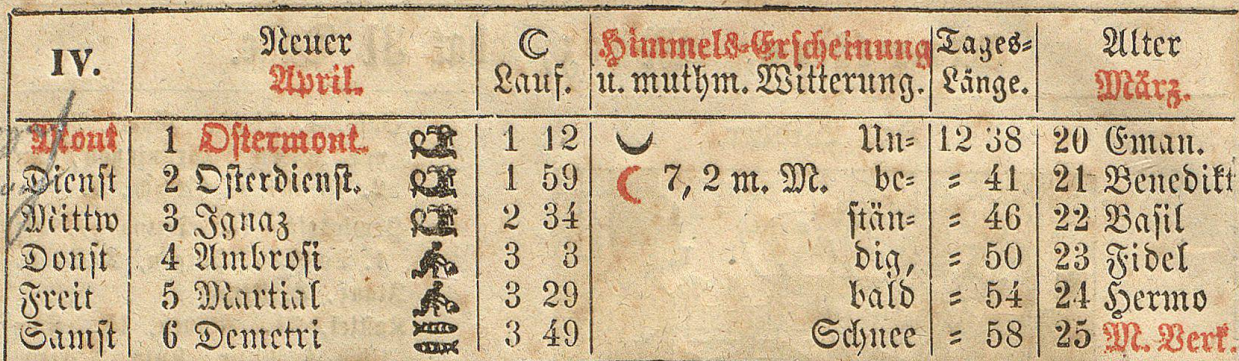 IV. Neuer April. ☾ Lauf. Himmels-Erscheinung u. muthm. Witterung. Tages-Länge. Alter März.
Mont 1 Ostermont. 1 12 Un- 12 38 20 Eman.
Dienst 2 Osterdienst. 1 59 ☾ 7, 2 m. M. be- = 41 21 Benedikt
Mittw 3 Ignaz 2 34 stän- = 46 22 Basil
Donst 4 Ambrosi 3 3 dig, = 50 23 Fidel
Freit 5 Martial 3 29 bald = 54 24 Hermo
Samst 6 Demetri 3 49 Schnee = 58 25 M. Verk.